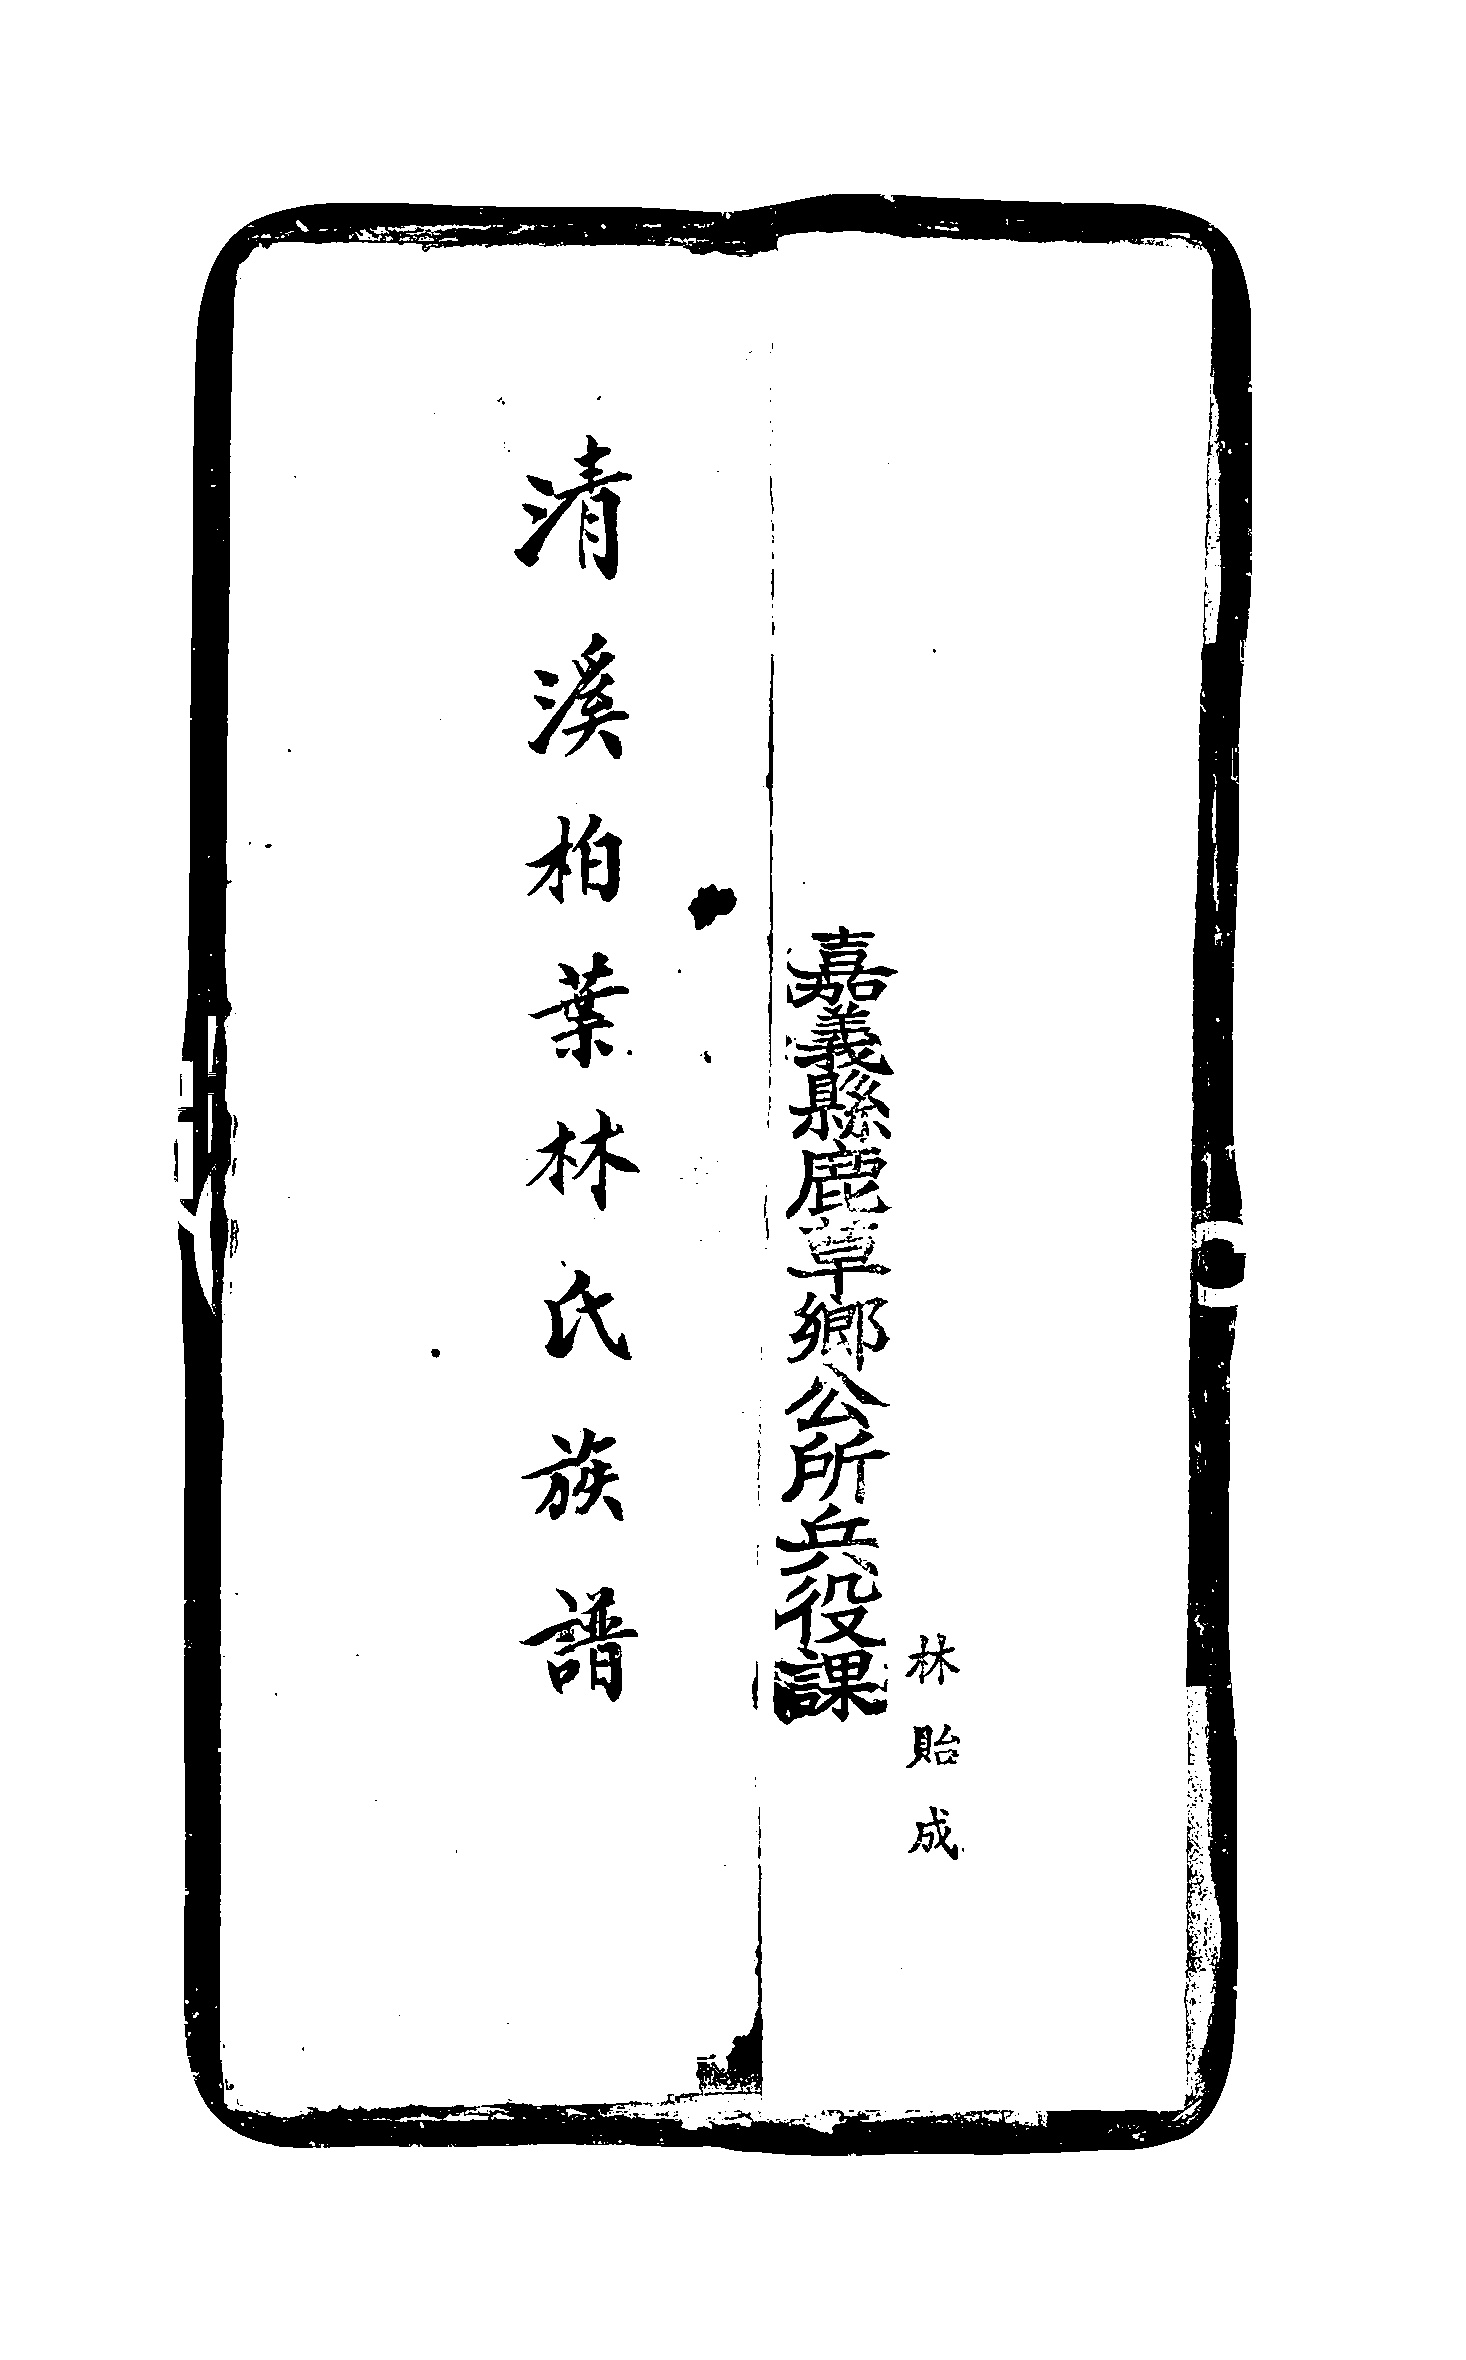 林貽成
嘉義縣鹿草鄉公所兵役課
清溪柏葉林氏族譜